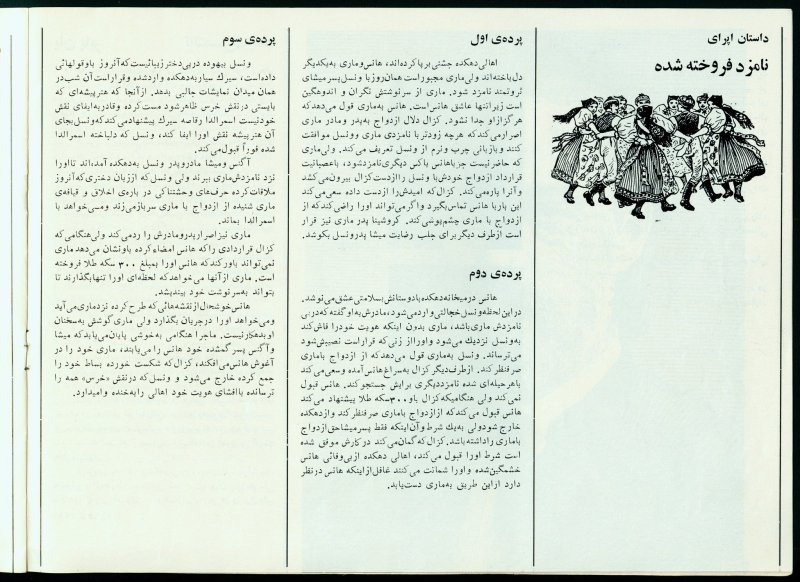 داستان اپرای
نامزد فروخته شده
پرده‌ی اول
اهالی دهکده جشنی برپا کرده‌اند، هانس و ماری به یکدیگر
دل باخته‌اند ولی ماری مجبور است همان روز با ونسل پسر میشای
ثروتمند نامزد شود. ماری از سرنوشتش نگران و اندوهگین
است زیرا تنها عاشق هانس است. هانس به ماری قول می‌دهد که
هرگز از او جدا نشود. کزال دلال ازدواج به پدر و مادر ماری
اصرار می‌کند که هرچه زودتر با نامزدی ماری و ونسل موافقت
کنند و با زبانی چرب و نرم از ونسل تعریف می‌کند. ولی ماری
که حاضر نیست جز با هانس با کس دیگری نامزد شود، با عصبانیت
قرارداد ازدواج خودش با ونسل را از دست کزال بیرون می‌کشد
و آنرا پاره می‌کند. کزال که امیدش را از دست داده سعی می‌کند
این بار با هانس تماس بگیرد و اگر می‌تواند اورا راضی کند که از
ازدواج با ماری چشم‌پوشی کند. کروشینا پدر ماری نیز قرار
است از طرف دیگر برای جلب رضایت میشا پدر ونسل بکوشد.
پرده‌ی دوم
هانس در میخانه دهکده با دوستانش بسلامتی عشق می‌نوشد.
در این لحظه ونسل خجالتی وارد می‌شود، مادرش به او گفته که در پی
نامزدش ماری باشد، ماری بدون اینکه هویت خود را فاش کند
به ونسل نزدیک می‌شود و او را از زنی که قرار است نصیبش شود
می‌ترساند. ونسل به ماری قول می‌دهد که از ازدواج با ماری
صرفنظر کند. از طرف دیگر کزال به سراغ هانس آمده و سعی می‌کند
با هر حیله‌ای شده نامزد دیگری برایش جستجو کند. هانس قبول
نمی‌کند ولی هنگامیکه کزال باو ۳۰۰ سکه طلا پیشنهاد می‌کند
هانس قبول می‌کند که از ازدواج با ماری صرفنظر کند و از دهکده
خارج شود ولی به یک شرط و آن اینکه فقط پسر میشا حق ازدواج
با ماری را داشته باشد. کزال که گمان می‌کند در کارش موفق شده
است شرط اورا قبول می‌کند، اهالی دهکده از بی‌وفائی هانس
خشمگین شده و اورا شماتت می‌کنند غافل از اینکه هانس در نظر
دارد از این طریق به ماری دست یابد.
پرده‌ی سوم
ونسل بیهوده در پی دختر زیبائیست که آنروز باو قولهائی
داده است، سیرک سیار به دهکده وارد شده و قرار است آن شب در
همان میدان نمایشات جالبی بدهد. از آنجا که هنرپیشه‌ای که
بایستی در نقش خرس ظاهر شود مست کرده و قادر به ایفای نقش
خود نیست اسمرالدا رقاصه سیرک پیشنهاد می‌کند که ونسل بجای
آن هنرپیشه نقش اورا ایفا کند، ونسل که دلباخته اسمرالدا
شده فوراً قبول می‌کند.
آگنس و میشا مادر و پدر ونسل به دهکده آمده‌اند تا اورا
نزد نامزدش ماری ببرند ولی ونسل که از زبان دختری که آنروز
ملاقات کرده حرف‌های وحشتناکی در باره‌ی اخلاق و قیافه‌ی
ماری شنیده از ازدواج با ماری سرباز می‌زند و می‌خواهد با
اسمرالدا بماند.
ماری نیز اصرار پدر و مادرش را رد می‌کند ولی هنگامی که
کزال قراردادی را که هانس امضاء کرده باو نشان می‌دهد ماری
نمی‌تواند باور کند که هانس اورا بمبلغ ۳۰۰ سکه طلا فروخته
است. ماری از آنها می‌خواهد که لحظه‌ای اورا تنها بگذارند تا
بتواند به سرنوشت خود بیندیشد.
هانس خوشحال از نقشه‌هائی که طرح کرده نزد ماری می‌آید
و می‌خواهد اورا در جریان بگذارد ولی ماری گوشش به سخنان
او بدهکار نیست. ماجرا هنگامی به خوشی پایان می‌یابد که میشا
و آگنس پسر گمشده خود هانس را می‌یابند، ماری خود را در
آغوش هانس می‌افکند، کزال که شکست خورده بساط خود را
جمع کرده خارج می‌شود و ونسل که در نقش «خرس» همه را
ترسانده با افشای هویت خود اهالی را به خنده وامیدارد.